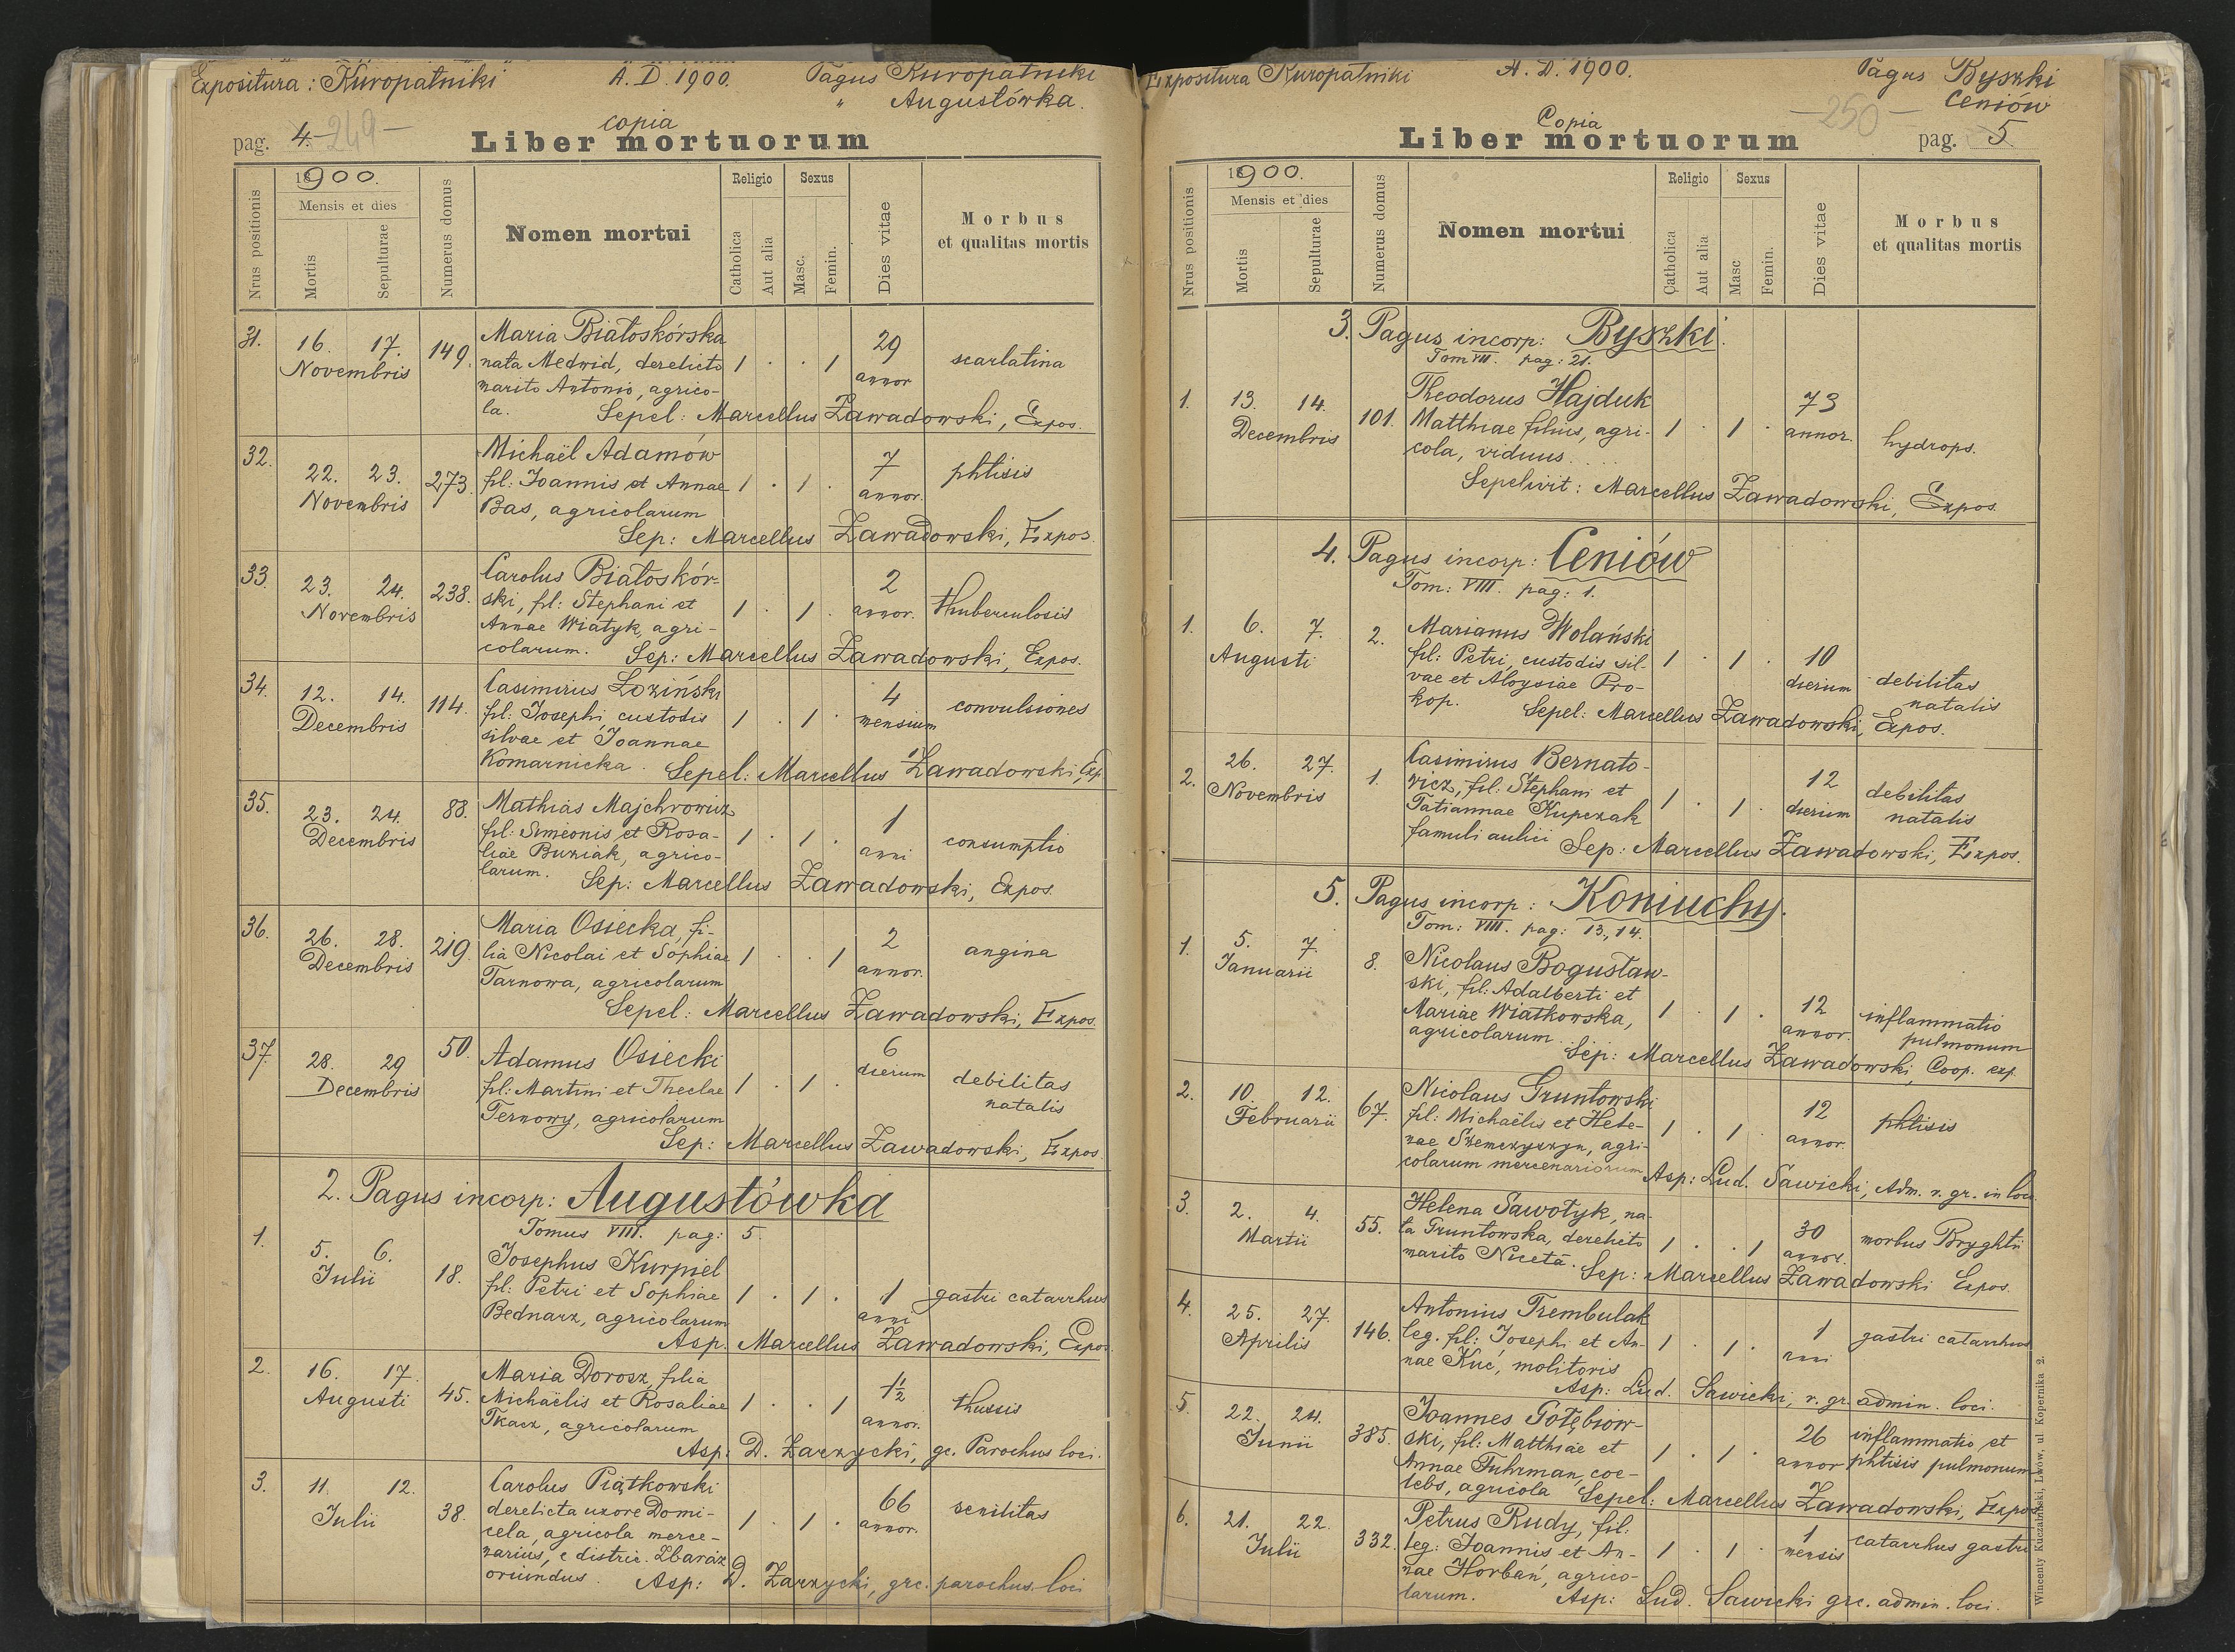 Expositura: Kuropatniki A. D. 1900. Pagus Kuropatniki
" Augustówka.
copia
pag. 4. 249 Liber mortuorum
Nrus positionis
18900.
Mensis et dies
Mortis
Sepulturae
Numerus domus
Nomen mortui
Religio
Catholica
Aut alia
Sexus
Masc.
Femin.
Dies vitae
Morbus
et qualitas mortis
31. 16. 17. Novembris 149. Maria Białoskórska
nata Medwid, derelicto 1 . . 1 29 annor scarlatina
marito Antonio, agrico-
la. Sepel: Marcellus Zawadowski, Expos.
32. 22. 23. Novembris 273. Michaël Adamów
fil: Joannis et Annae 1 . 1 . 7 annor. phtisis
Bas, agricolarum
Sep: Marcellus Zawadowski, Expos.
33. 23. 24. Novembris 238. Carolus Białoskór-
ski, fil: Stephani et 1 . 1 . 2 annor. thuberculosis
Annae Wiatyk, agri-
colarum. Sep: Marcellus Zawadowski, Expos.
34. 12. 14. Decembris 114. Casimirus Łoziński
fil: Josephi, custodis 1 . 1 . 4 mensium convulsiones
silvae et Joannae
Komarnicka. Sepel: Marcellus Zawadowski, Exp.
35. 23. 24. Decembris 88. Mathias Majchrowicz
fil: Simeonis et Rosa- 1 . 1 . 1 anni consumptio
liae Buziak, agrico-
larum. Sep: Marcellus Zawadowski, Expos.
36. 26. 28. Decembris 219. Maria Osiecka, fi-
lia Nicolai et Sophiae 1 . . 1 2 annor. angina
Tarnowa, agricolarum
Sepel: Marcellus Zawadowski, Expos.
37. 28. 29 Decembris 50. Adamus Osiecki
fil: Martini et Theclae 1 . 1 . 6 dierum debilitas
natalis
Ternowy, agricolarum
Sep: Marcellus Zawadowski, Expos
2. Pagus incorp: Augustówka
Tomus VIII. pag: 5.
1. 5. 6. Julii 18. Josephus Kurpiel
fil: Petri et Sophiae 1 . 1 . 1 anni gastri catarrhus
Bednarz, agricolarum
Asp. Marcellus Zawadowski, Expos.
2. 16. 17. Augusti 45. Maria Dorosz, filia
Michaëlis et Rosaliae 1 . . 1 1½ annor. thussis
Tkacz, agricolarum
Asp: D. Zarzycki, gc. Parochus loci.
3. 11. 12. Julii 38. Carolus Piątkowski
derelicta uxore Domi- 1 . 1 . 66 annor. senilitas
cela, agricola merce-
narius, e distric. Zbaraż
oriundus. Asp: D. Zarzycki, grc. parochus loci
Expositura Kuropatniki A. D. 1900. Pagus Byszki
Ceniów
250
Copia
Liber mortuorum pag. 5
Nrus positionis
18900.
Mensis et dies
Mortis
Sepulturae
Numerus domus
Nomen mortui
Religio
Catholica
Aut alia
Sexus
Masc
Femin.
Dies vitae
Morbus
et qualitas mortis
3. Pagus incorp: Byszki.
Tom VII. pag: 21.
1. 13. 14. Decembris 101. Theodorus Hajduk
Matthiae filius, agri- 1 . 1 . 73 annor. hydrops.
cola, viduus....
Sepelivit: Marcellus Zawadowski, Expos.
4. Pagus incorp: Ceniów
Tom: VIII. pag: 1.
1. 6. 7. Augusti 2. Marianus Wolański
fil: Petri, custodis sil- 1 . 1 . 10 dierum debilitas
natalis
vae et Aloysiae Pro-
kop. Sepel: Marcellus Zawadowski, Expos.
2. 26. 27. Novembris 1. Casimirus Bernato-
wicz, fil: Stephani et 1 . 1 . 12 dierum debilitas
natalis
Tatiannae Kupczak
famuli aulici Sep: Marcellus Zawadowski, Expos.
5. Pagus incorp: Koniuchy.
Tom: VIII. pag: 13, 14.
1. 5. 7. Januarii 8. Nicolaus Bogusław-
ski, fil: Adalberti et
Mariae Wiatkowska, 1 . 1 . 12 annor. inflammatio
pulmonum
agricolarum.
Sep: Marcellus Zawadowski, Coop. exp.
2. 10. 12. Februarii 67. Nicolaus Gruntowski
fil: Michaëlis et Hele- 1 . 1 . 12 annor. phtisis
nae Szemczyszyn, agri-
colarum mercenariorum Asp: Lud. Sawicki, Adm. r. gr. in loco.
3. 2. 4. Martii 55. Helena Sawotyk, na-
ta Gruntowska, derelicto 1 . . 1 30 annor. morbus Bryghtii
marito Niceta. Sep: Marcellus Zawadowski Expos.
4. 25. 27. Aprilis 146. Antonius Trembulak
leg. fil: Josephi et An- 1 . 1 . 1 anni gastri catarrhus
nae Kuć, molitoris
Asp: Lud. Sawicki, r. gr. admin. loci.
5. 22. 24. Junii 385. Joannes Gołębiow-
ski, fil: Matthiae et 1 . 1 . 26 annor inflammatio et
phtisis pulmonum
Annae Fuhrman, coe-
lebs, agricola Sepel: Marcellus Zawadowski, Expos
6. 21. 22. Julii 332. Petrus Rudy, fil.
leg: Joannis et An- 1 . 1 . 1 mensis catarrhus gastri
nae Horbań, agrico-
larum. Asp: Lud. Sawicki grc. admin. loci.
Wincenty Kuczabiński, Lwów, ul Kopernika 2.